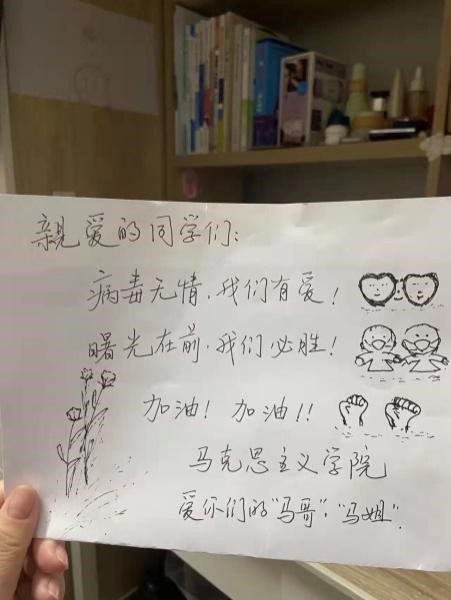 親爱的同学们:
病毒无情,我们有爱!
曙光在前,我们必胜!
加油! 加油!!
马克思主义学院
爱你们的“马哥”,“马姐”.